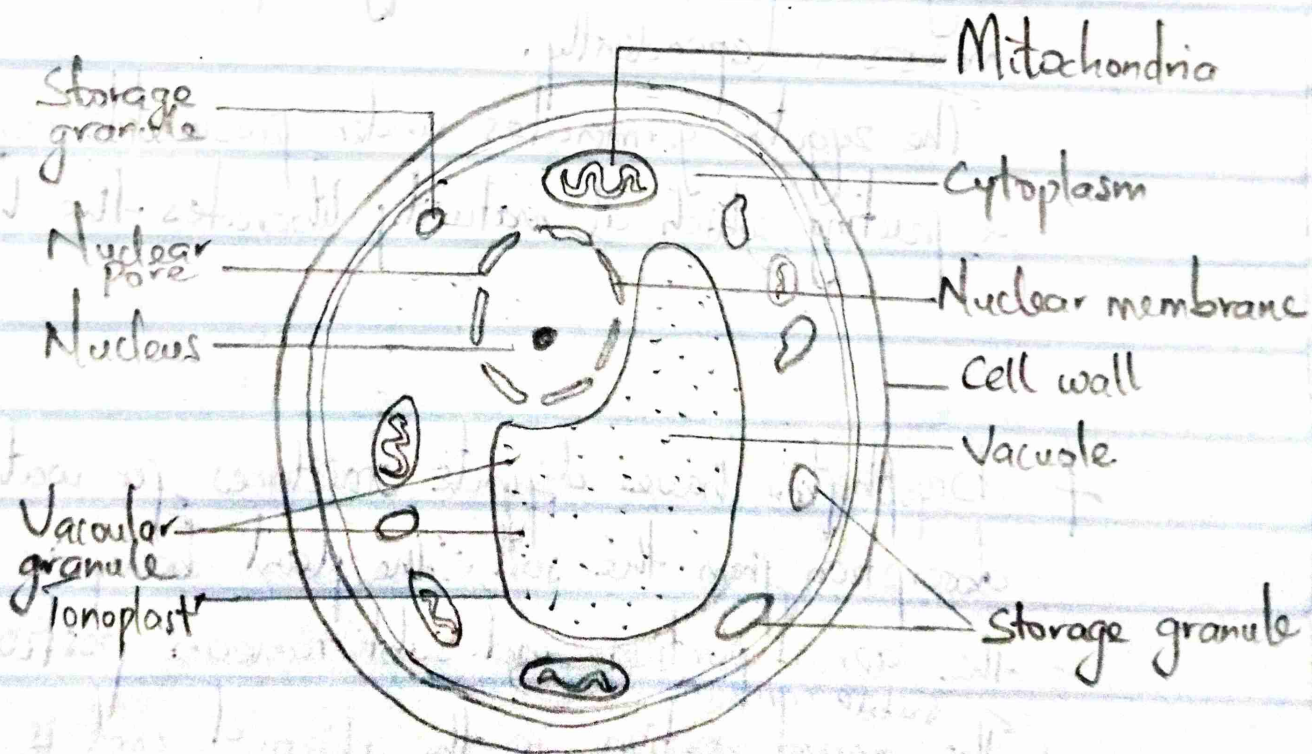 Storage
granule
Nuclear
pore
Nucleus
Vacoular
granule
Tonoplast
Mitochondria
Cytoplasm
Nuclear membrane
Cell wall
Vacuole
Storage granule